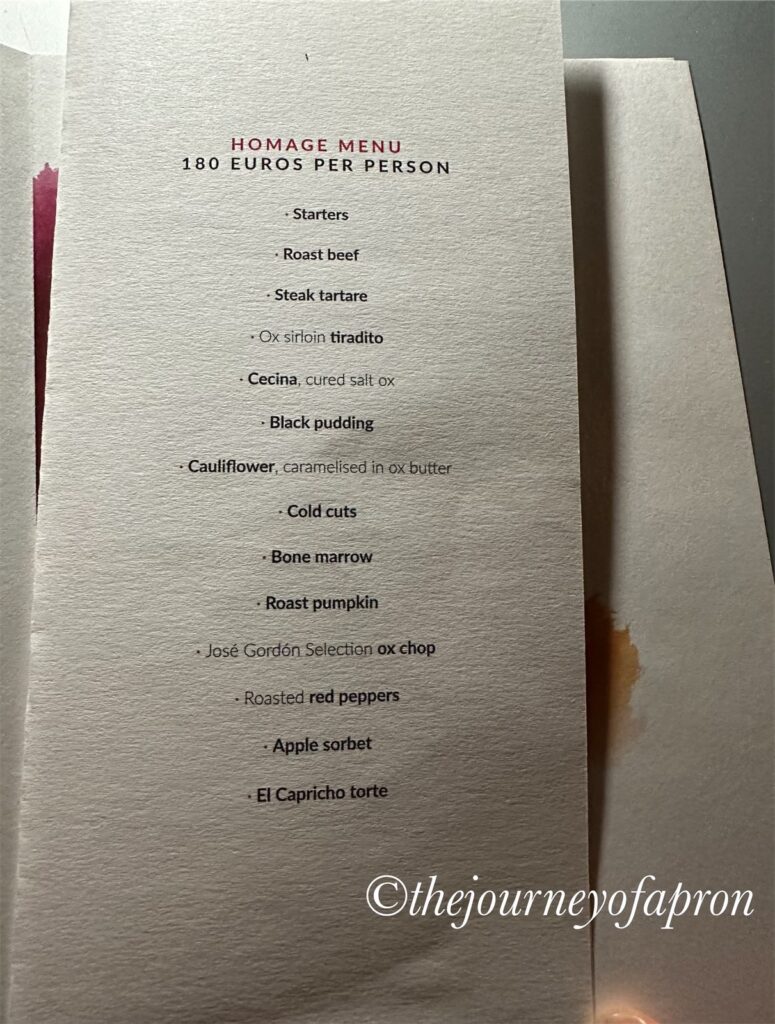 HOMAGE MENU
180 EUROS PER PERSON
· Starters
· Roast beef
· Steak tartare
· Ox sirloin tiradito
· Cecina, cured salt ox
· Black pudding
· Cauliflower, caramelised in ox butter
· Cold cuts
· Bone marrow
· Roast pumpkin
· José Gordón Selection ox chop
· Roasted red peppers
· Apple sorbet
· El Capricho torte
©thejourneyofapron